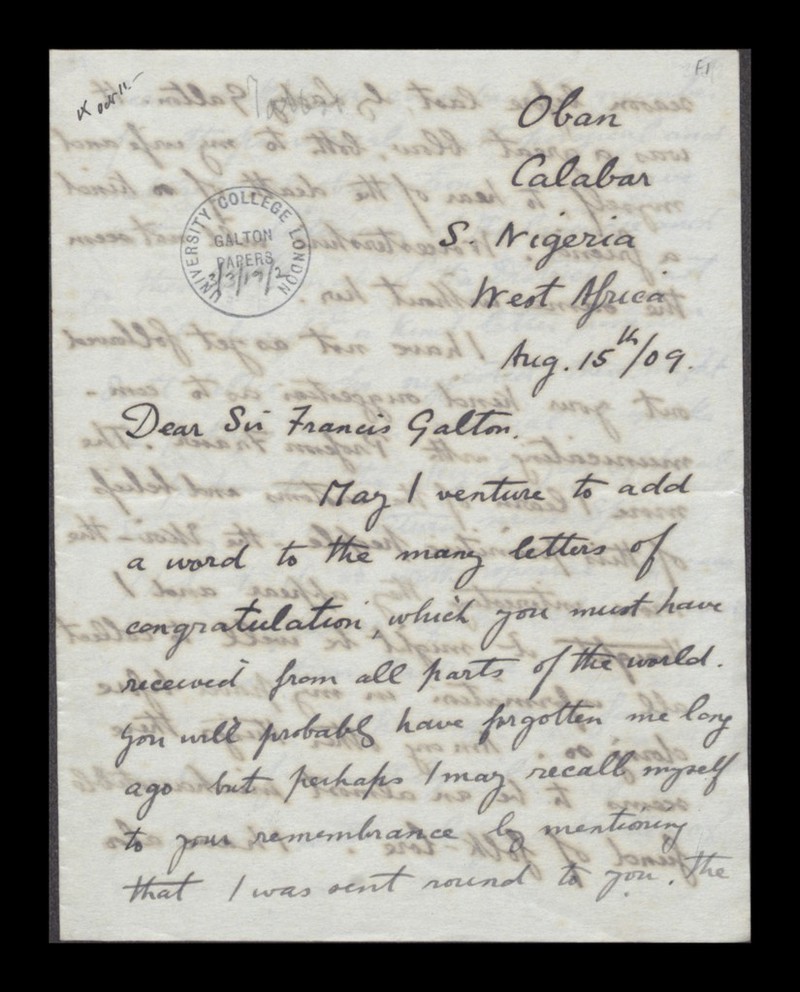 F1
Oban
Calabar
S. Nigeria
West Africa
Aug. 15th/09.
UNIVERSITY COLLEGE LONDON
GALTON
PAPERS
Dear Sir Francis Galton,
May I venture to add
a word to the many letters of
congratulation, which you must have
received from all parts of the world.
You will probably have forgotten me long
ago but perhaps I may recall myself
to your remembrance by mentioning
that I was sent round to you, the